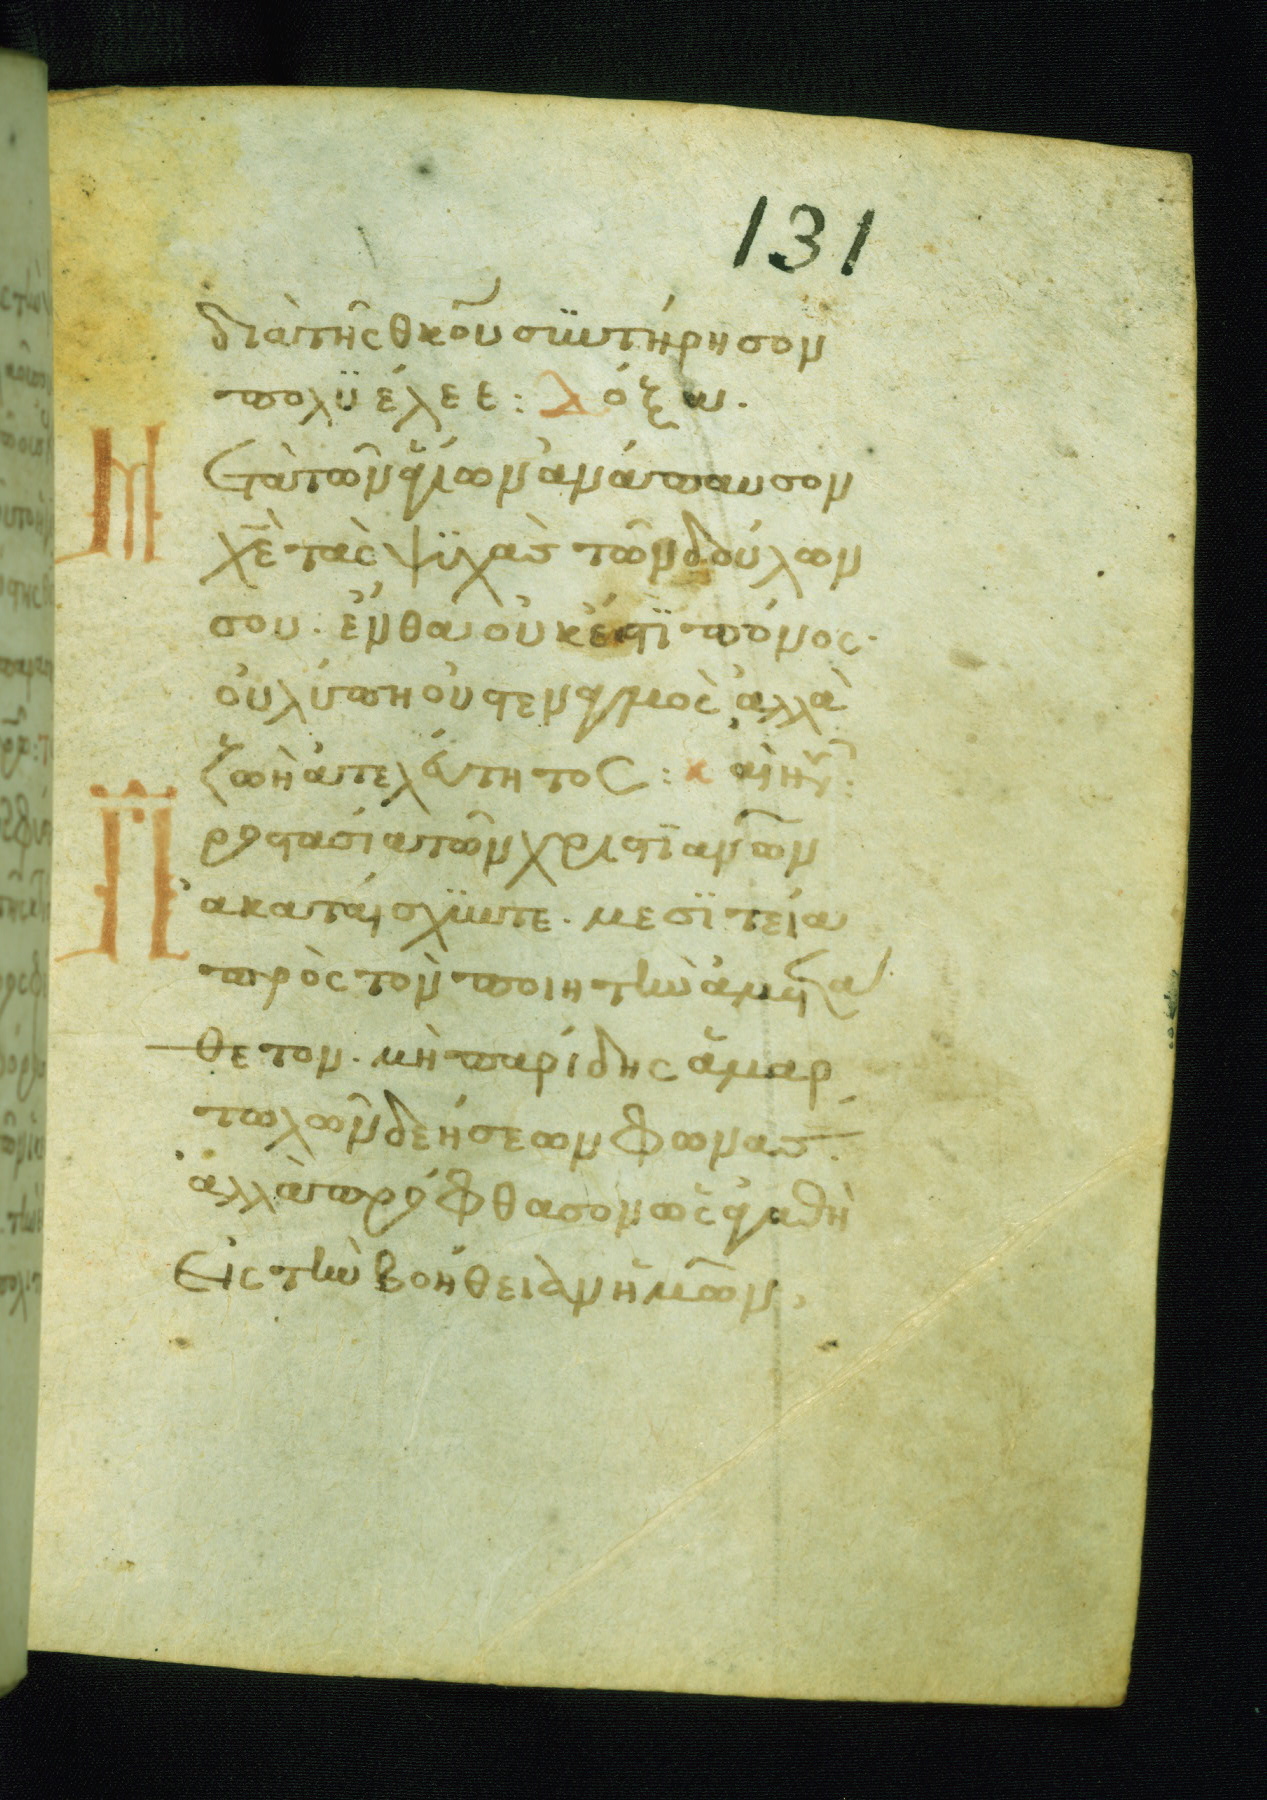 131
διὰ τῆς θκου συντήρησον
πολϋέλεε : Δόξω.
Μ ετὰ τῶν ἁγίων ἀνάπαυσον
χε τὰς ψϋχὰς τῶν δούλων
σου. ἔνθα οὐκ ἔστϊ πόνος.
οὐ λύπη οὐ στεναγμὸς ἀλλὰ
ζωὴ ἀτελεύτητος : κ αὶ νῦν :
Π ροστασία τῶν χριστϊανῶν
ἀκαταίσχϋντε. μεσϊτεία
πρὸς τὸν ποιητὴν ἀμετα
θετον. μὴ παρίδης ἁμαρ
τωλῶν δεήσεων φωνάς.
ἀλλὰ πρόφθασον ὡς ἀγαθὴ
εἰς τὴν βοήθειαν ἡμῶν.